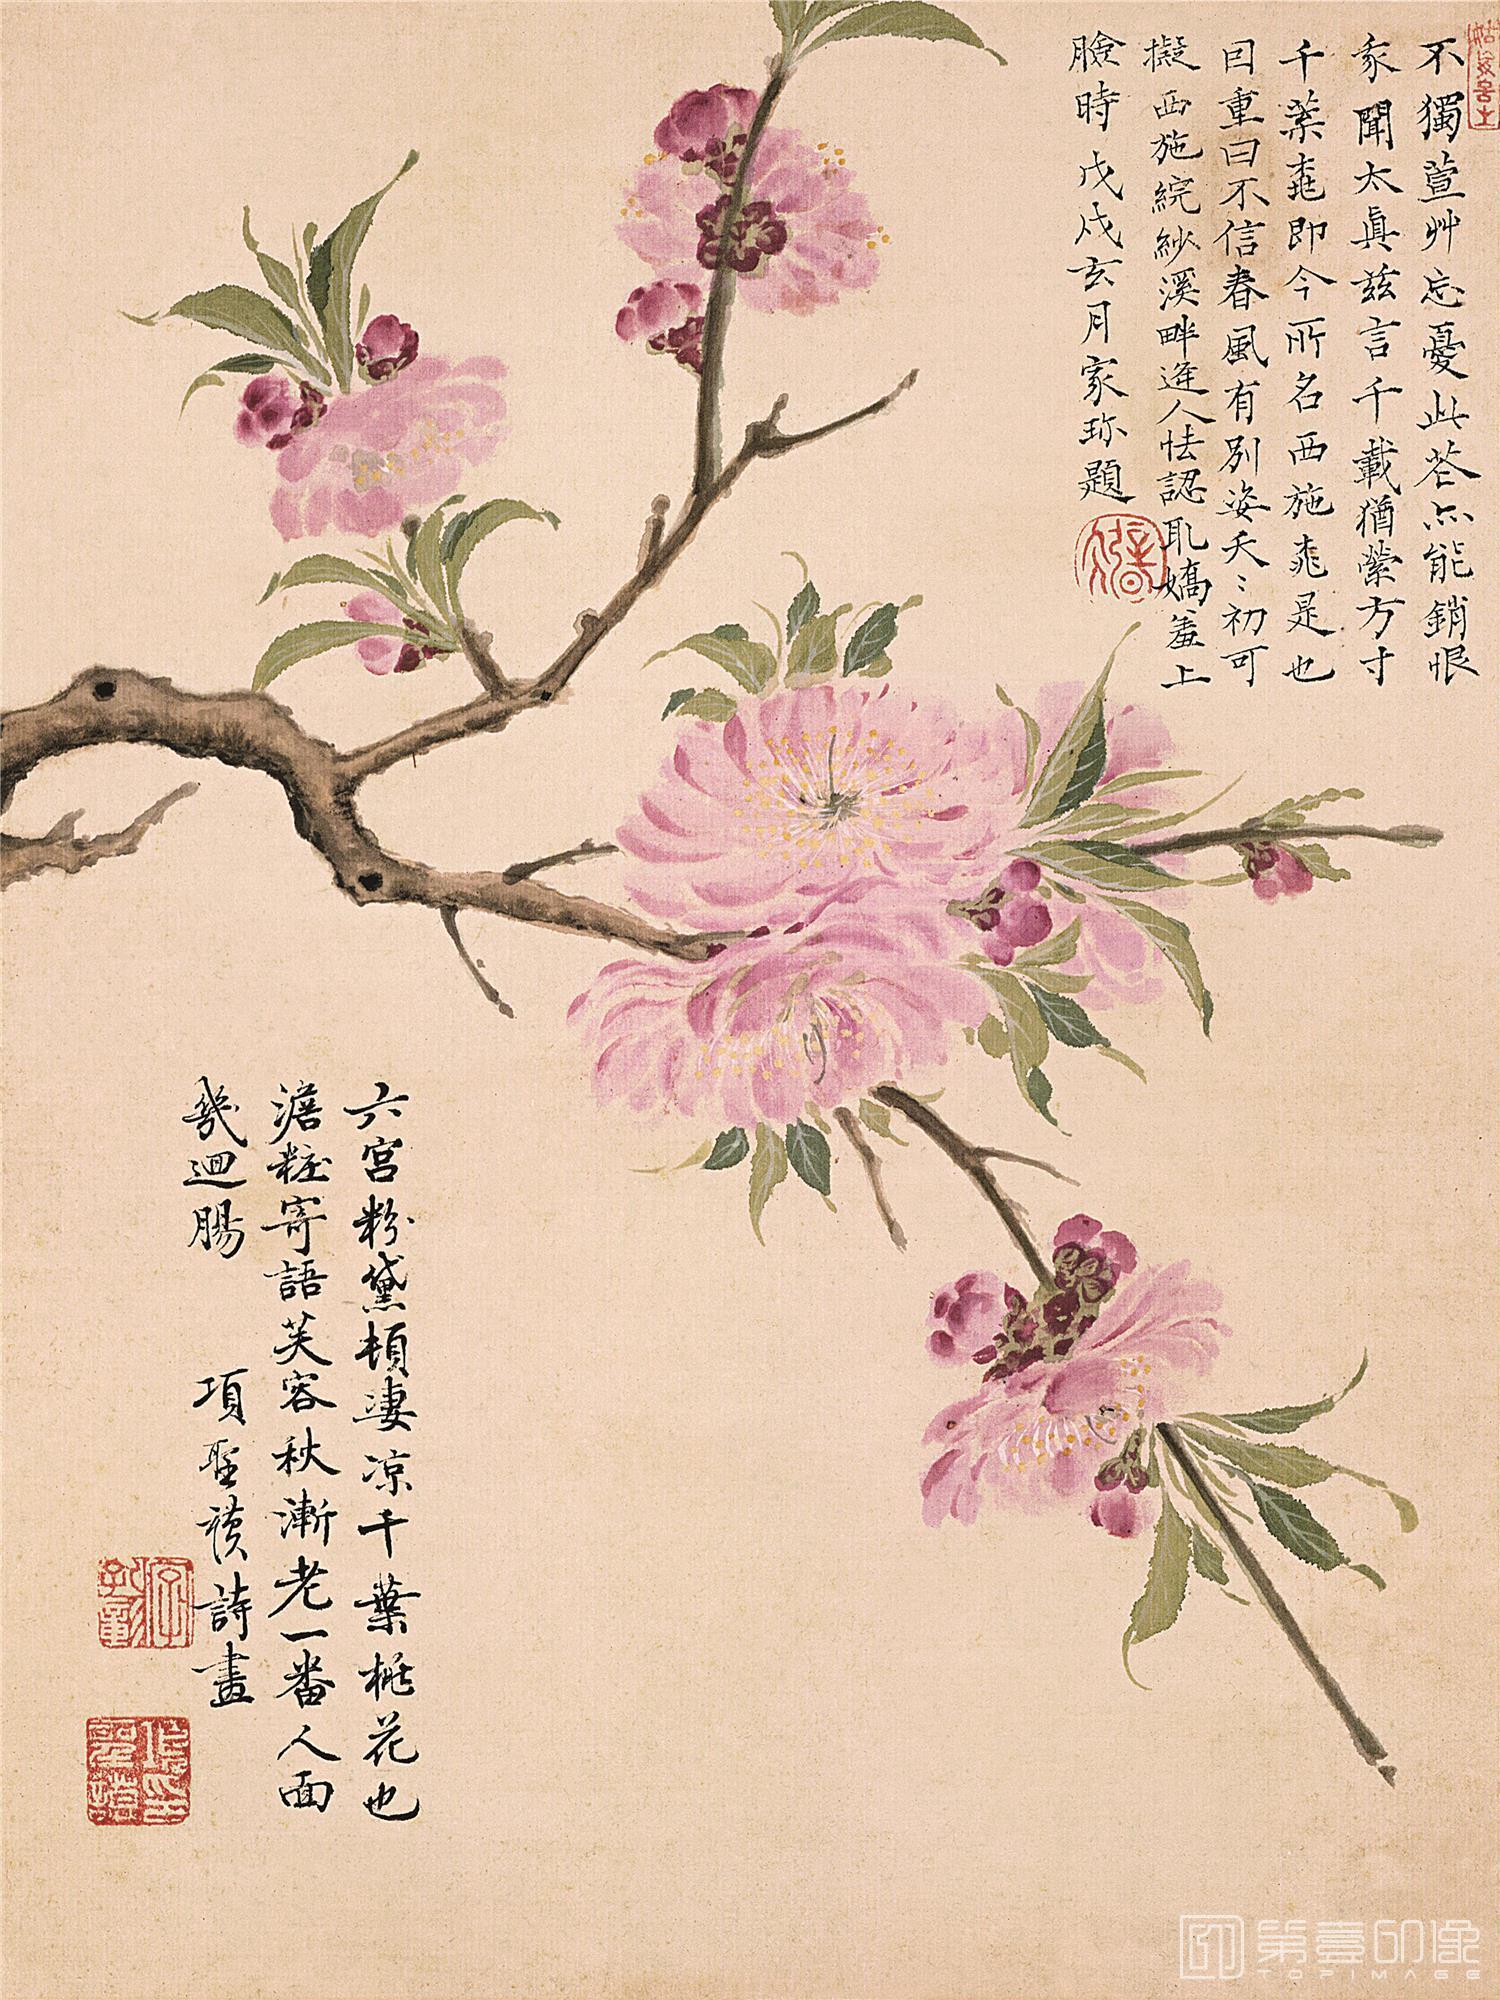 不獨萱艸忘憂此苍亦能銷恨
家聞太真兹言千載猶縈方寸
千葉桃即今所名西施桃是也
因重曰不信春風有別姿夭〻初可
擬西施綄紗溪畔逢人怯認取嬌羞上
臉時 戊戌玄月家珎題
六宮粉黛頓凄凉千葉桃花也
澹粧寄語芙容秋漸老一番人面
幾迴腸
項聖謨詩畫
第壹印像
TOPIMAGE